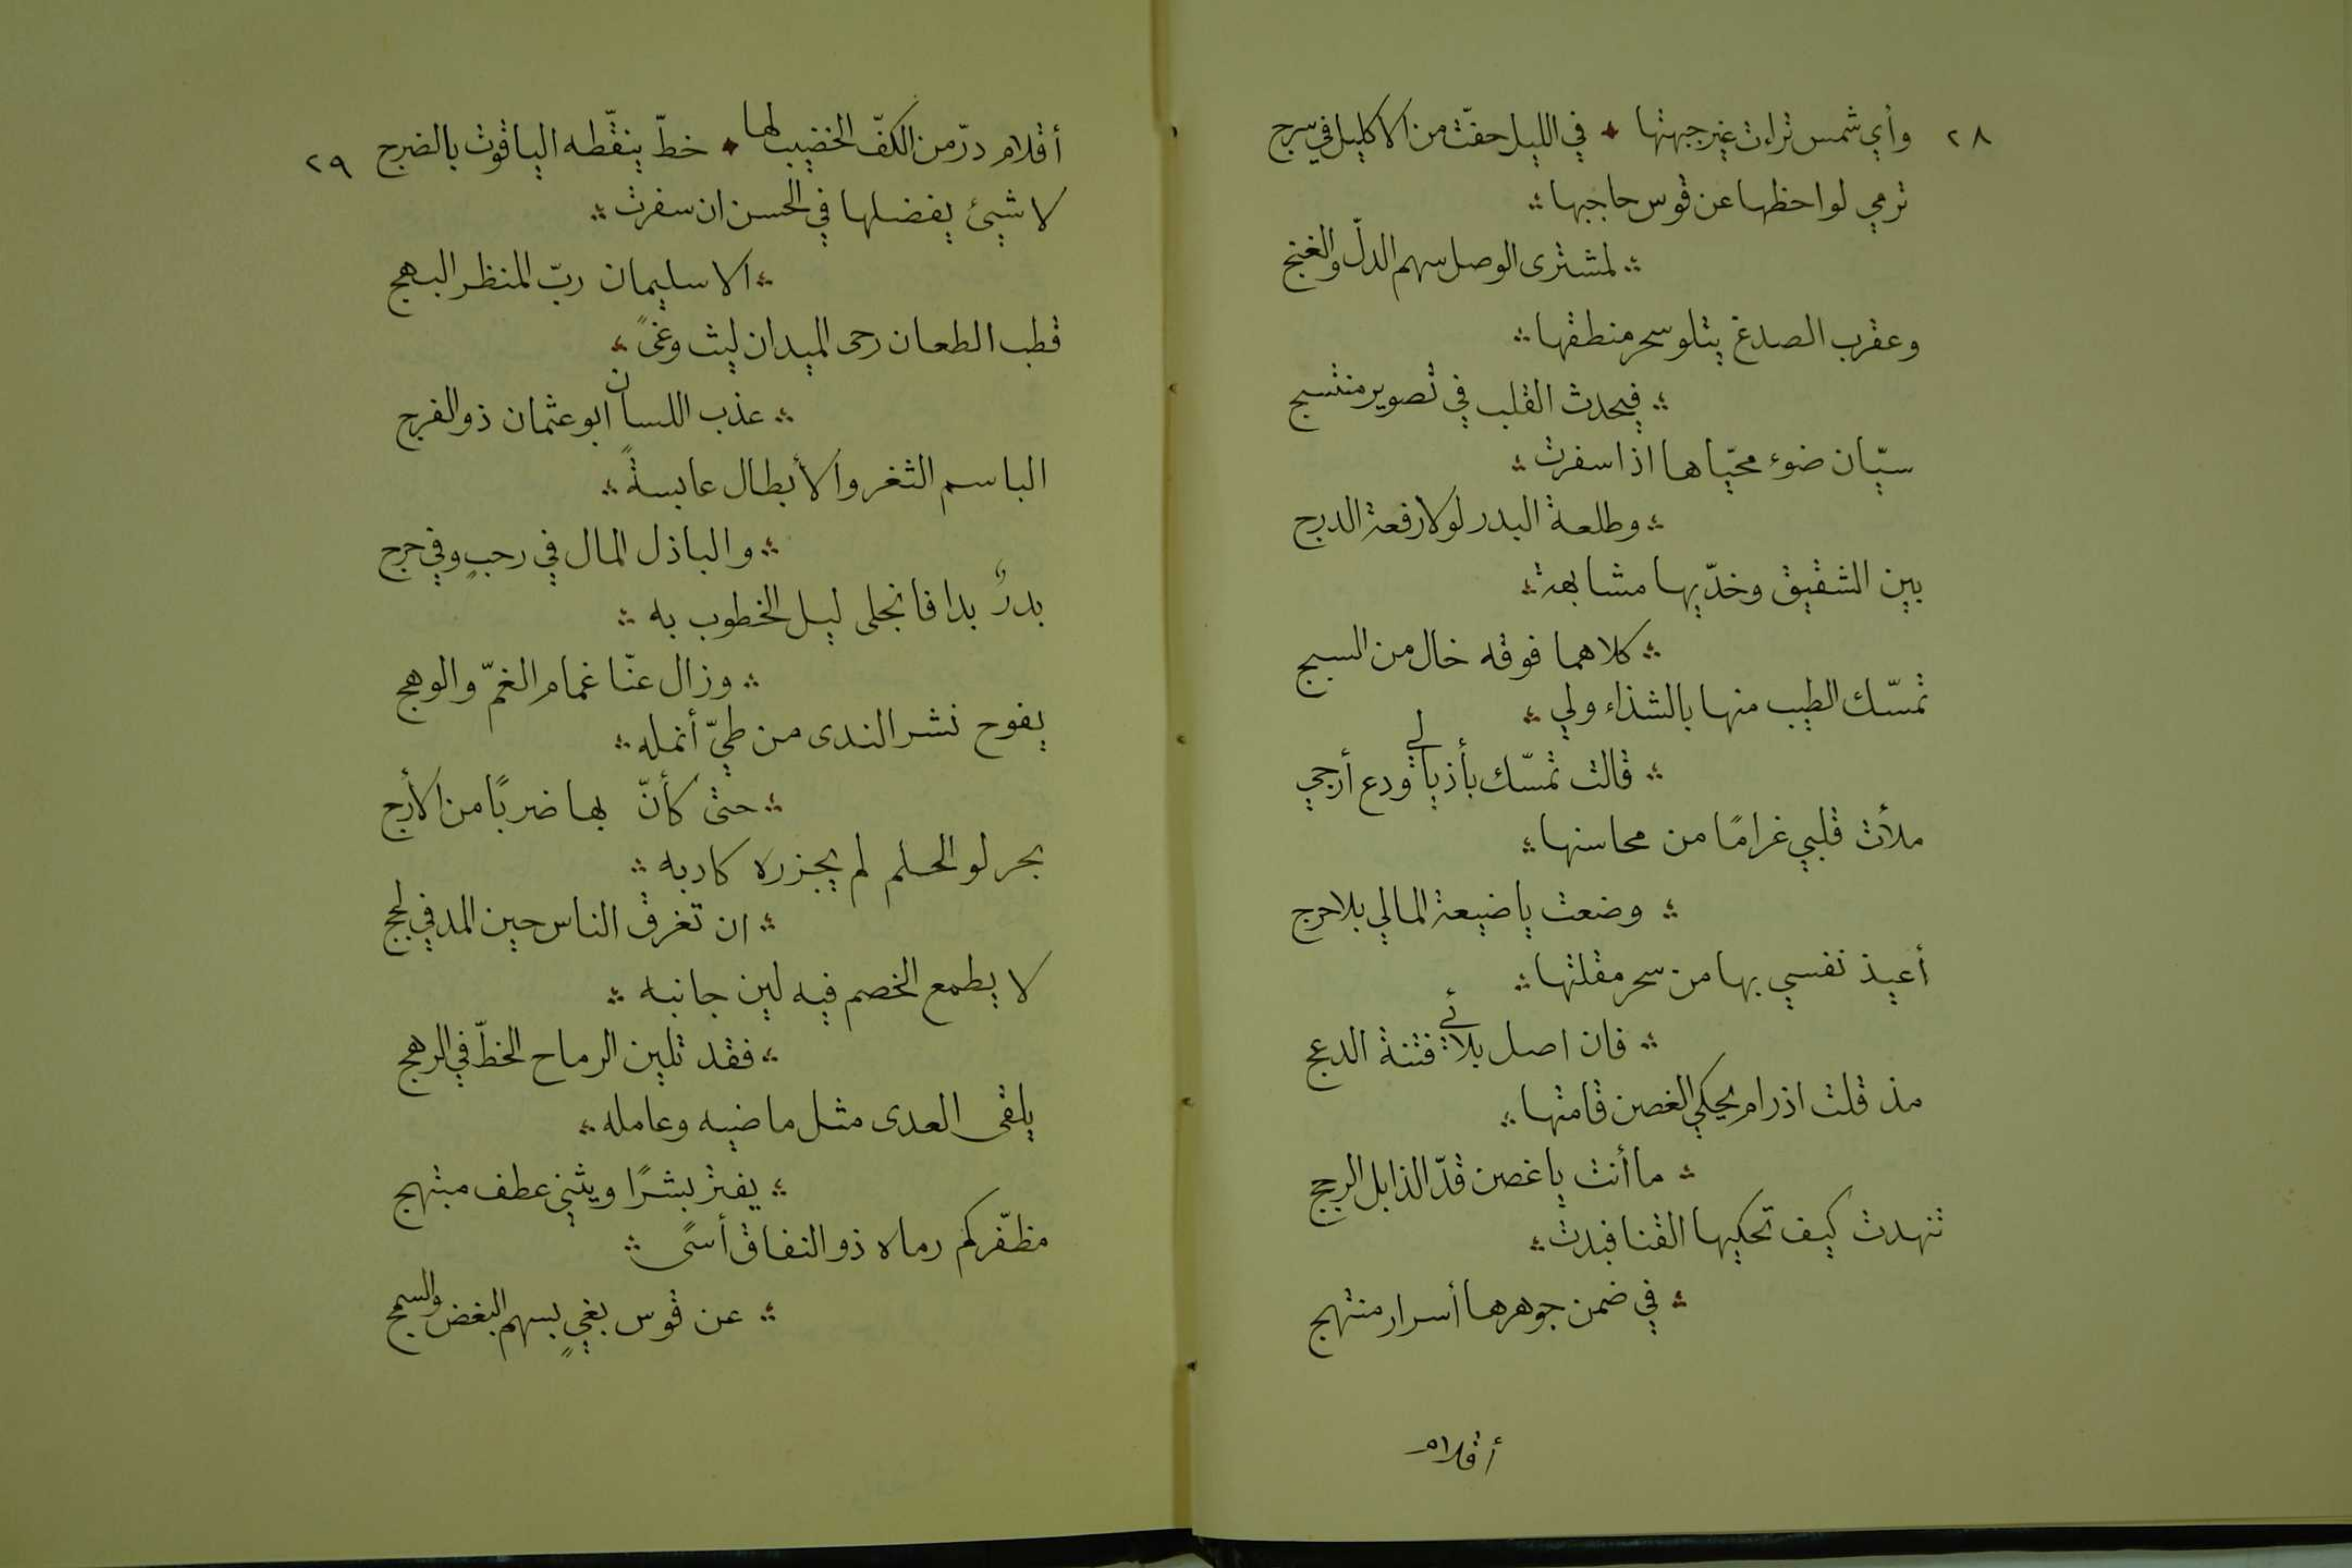 ٢٨ وأي شمس تراءت غير جبهتها في الليل حفّت من الاكليل في سرج
ترمي لواحظها عن قوس حاجبها
لمشترى الوصل سهم الدلّ والغنج
وعقرب الصدغ يتلو سحر منطقها
فيحدث القلب في تصوير منتسج
سيّان ضوء محيّاها اذا سفرت
وطلعة البدر لولا رفعة الدرج
بين الشقيق وخدّيها مشابهة
كلاهما فوقه خال من السبج
تمسّك الطيب منها بالشذاء ولي
قالت تمسّك بأذيالي ودع أرجي
ملأت قلبي غرامًا من محاسنها
وضعت يا ضيعة المالي بلا حرج
أعيذ نفسي بها من سحر مقلتها
فان اصل بلائي فتنة الدعج
مذ قلت اذ رام يحكي الغصن قامتها
ما أنت يا غصن قدّ الذابل الرجج
تنهدت كيف تحكيها القنا فبدت
في ضمن جوهرها أسرار منتهج
أقلام
أقلام درّ من الكفّ الخضيب لها خطّ ينقّطه الياقوت بالضرج ٢٩
لا شيئ يفضلها في الحسن ان سفرت
الا سليمان ربّ المنظر البهج
قطب الطعان رحى الميدان ليث وغىً
عذب اللسان ابو عثمان ذو الفرج
الباسم الثغر والأبطال عابسةً
والباذل المال في رحبٍ وفي حرج
بدرٌ بدا فانجلى ليل الخطوب به
وزال عنّا غمام الغمّ والوهج
يفوح نشر الندى من طيّ أنمله
حتى كأنّ بها ضربًا من الأرج
بحر لو الحلم لم يجزره كاد به
ان تغرق الناس حين المد في لجج
لا يطمع الخصم فيه لين جانبه
فقد تلين الرماح الخطّ في الرهج
يلقى العدى مثل ماضيه وعامله
يفتر بشرًا ويثني عطف مبتهج
مظفّر كم رماه ذو النفاق أسىً
عن قوس بغيٍ بسهم البغض والسمج